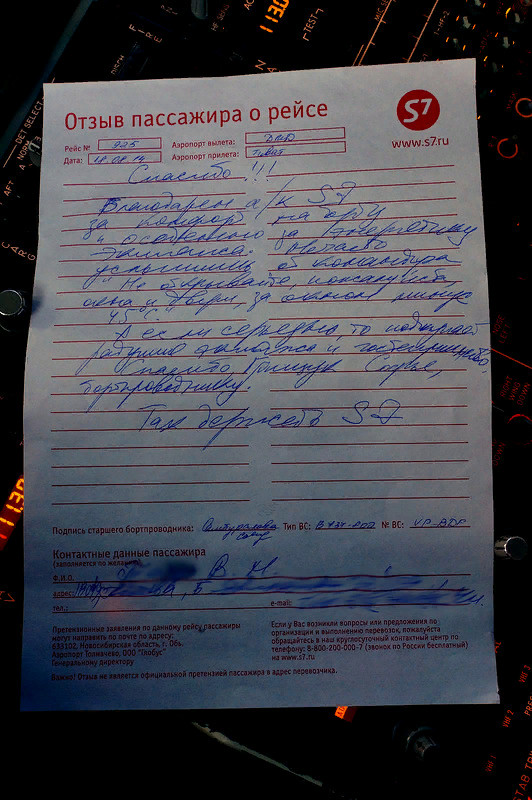 TEST
113.0
DET SELECT
A NORM B
AFT
CARGO
Отзыв пассажира о рейсе
S7
www.s7.ru
Рейс № 925 Аэропорт вылета: DMD
Дата: 18.08.14 Аэропорт прилета: Тиват
Спасибо!!!
Благодарен а/к S7
за комфорт на борту
и особенно за энергетику
экипажа.
услышишь от командира
"Не открывайте, пожалуйста,
окна и двери, за окном минус
45°C"
А если серьезно, то подкупает
радушие экипажа и гостеприимство.
Спасибо Грищук Софье,
бортпроводнику.
Так держать S7
Подпись старшего бортпроводника: Тип ВС: B-737-800 № ВС: VP-BDF
Контактные данные пассажира
(заполняется по желанию)
Ф.И.О. В. Н
адрес:
тел.: e-mail:
Претензионные заявления по данному рейсу пассажиры
могут направить по почте по адресу:
633102, Новосибирская область, г. Обь,
Аэропорт Толмачево, ООО "Глобус"
Генеральному директору
Если у Вас возникли вопросы или предложения по
организации и выполнению перевозок, пожалуйста
обращайтесь в наш круглосуточный контактный центр по
телефону: 8-800-200-000-7 (звонок по России бесплатный)
на www.s7.ru
Важно! Отзыв не является официальной претензией пассажира в адрес перевозчика.
113.0
VHF 3
VHF 2
VHF 1